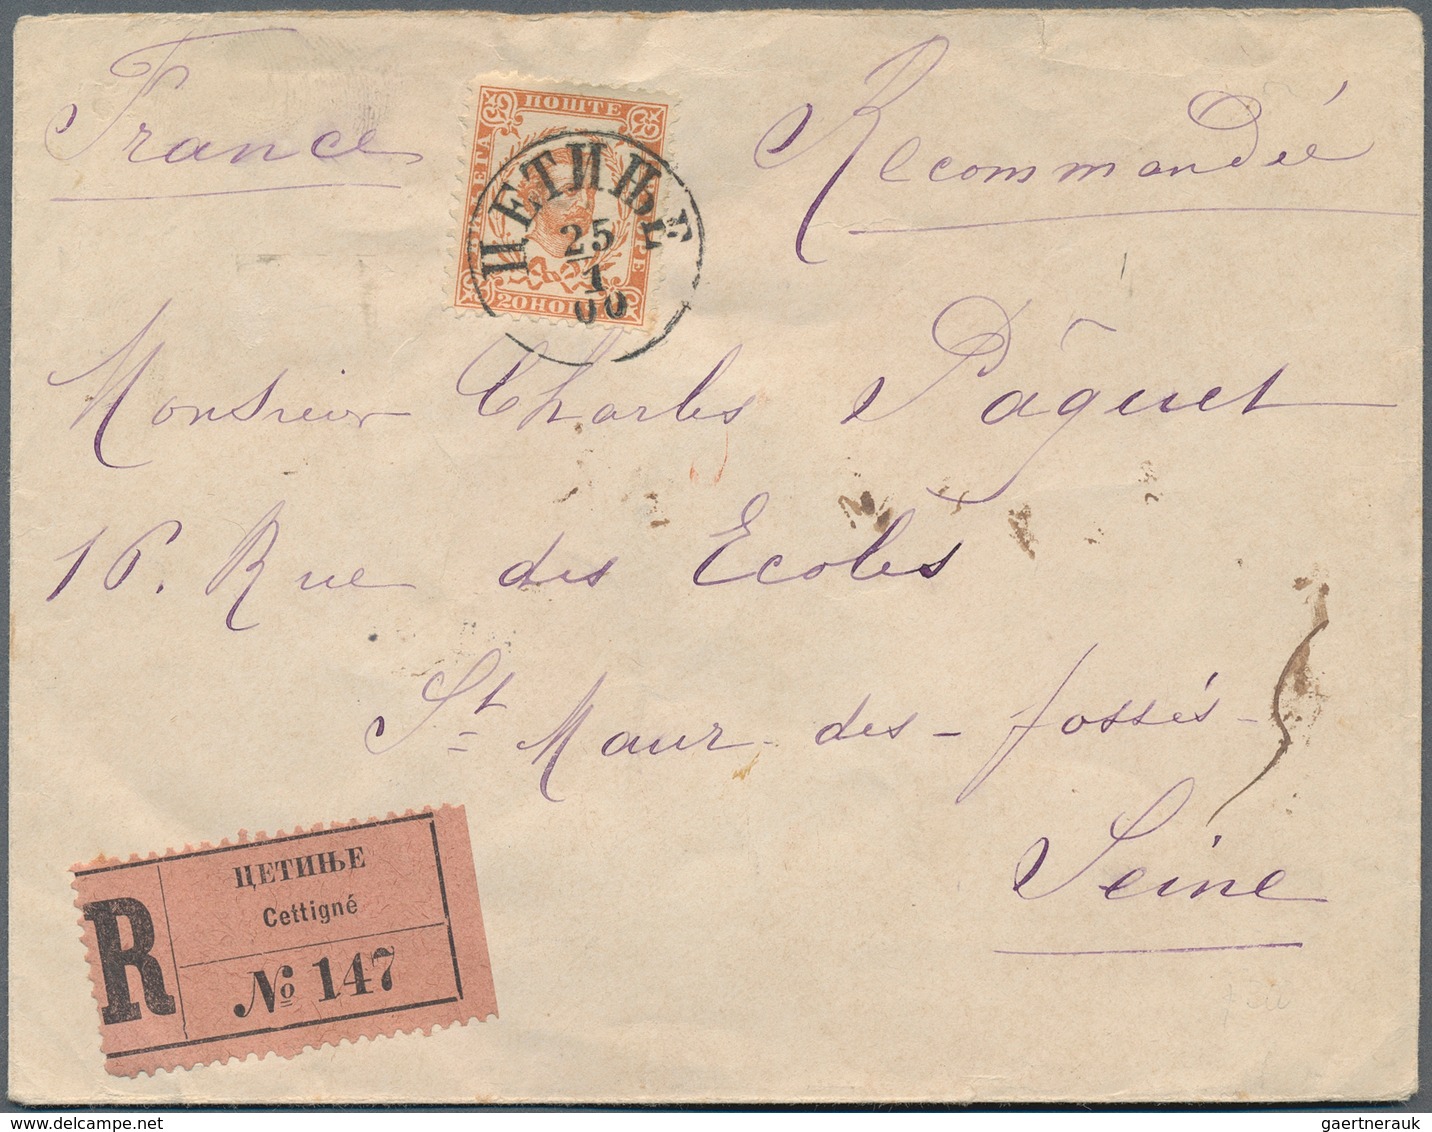 France
Recommandée
ПОШТЕ
20 НОВ
ЦЕТИЊЕ
25
1
00
Monsieur Charles Pâquet
16. Rue des Ecoles
St Maur - des - fossés -
Seine
R
ЦЕТИЊЕ
Cettigné
№ 147
gaertnerauk